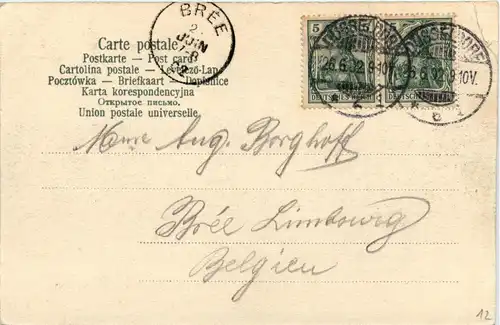 BRÉE
2
JUIN
Carte postale
Postkarte — Post card
Cartolina postale — Levelező-Lap
Pocztówka — Briefkaart — Dopisnice
Karta korespondencyjna
Открытое письмо.
Union postale universelle.
5
DÜSSELDORF
26.6.02.9-10V.
DÜSSELDORF
.6.02.9-10V.
Aug. Borghoff
Brée Limbourg
Belgien
12